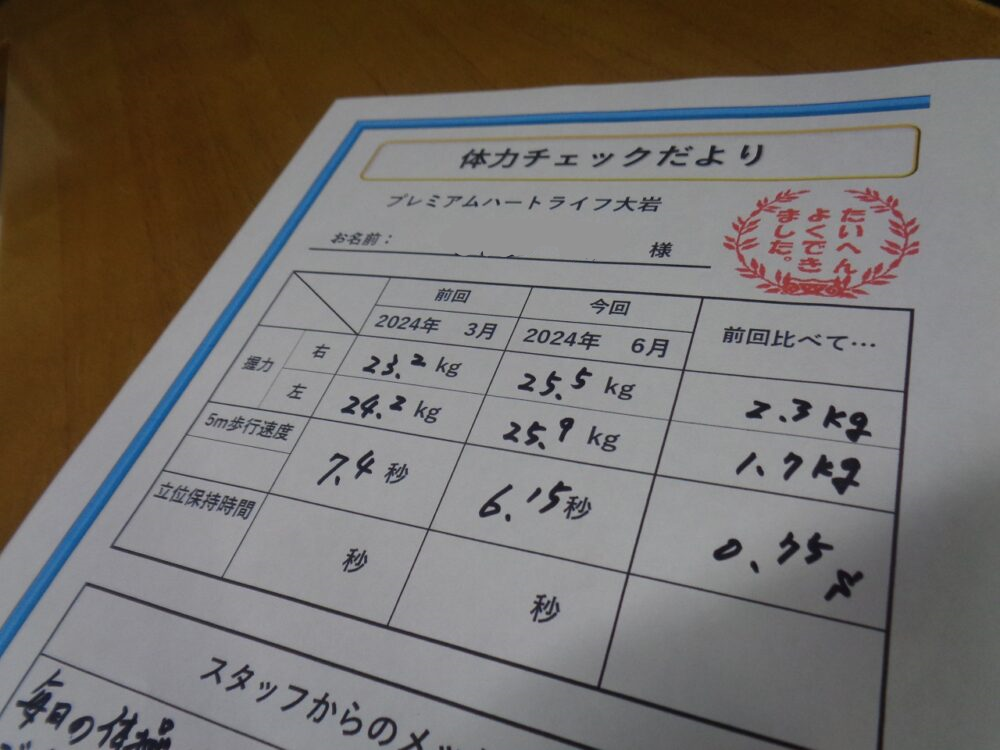 体力チェックだより
プレミアムハートライフ大岩
お名前：
様
たいへん
よくでき
ました。
前回
今回
前回比べて…
2024年 3月
2024年 6月
握力
右
23.2 kg
25.5 kg
2.3kg
左
24.2 kg
25.9 kg
1.7kg
5m歩行速度
7.4 秒
6.15秒
0.75
立位保持時間
秒
秒
スタッフからのメッ
毎日の体操